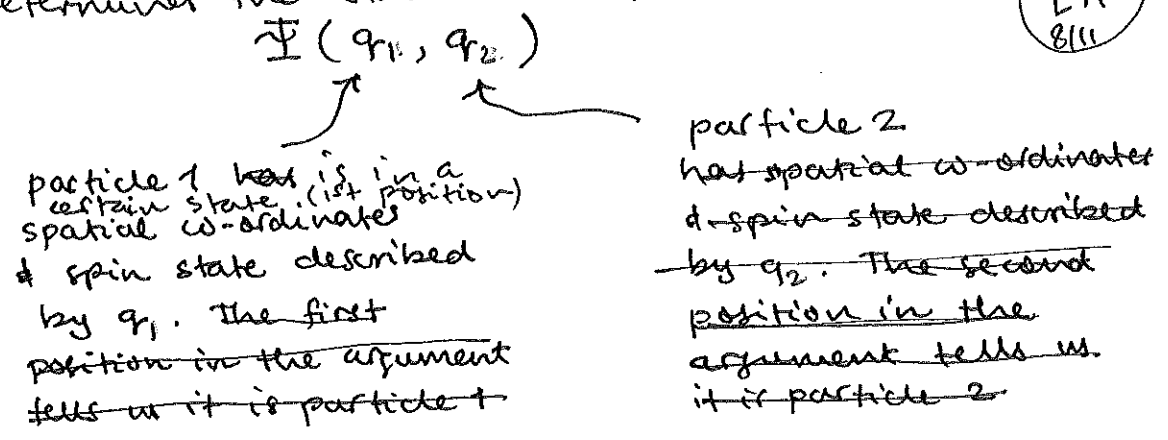 Ψ(q₁, q₂)
8/11
particle 1 has is in a
certain state (1st position)
spatial co-ordinates
& spin state described
by q₁. The first
position in the argument
tells us it is particle 1
particle 2
has spatial co-ordinates
& spin state described
by q₂. The second
position in the
argument tells us
it is particle 2